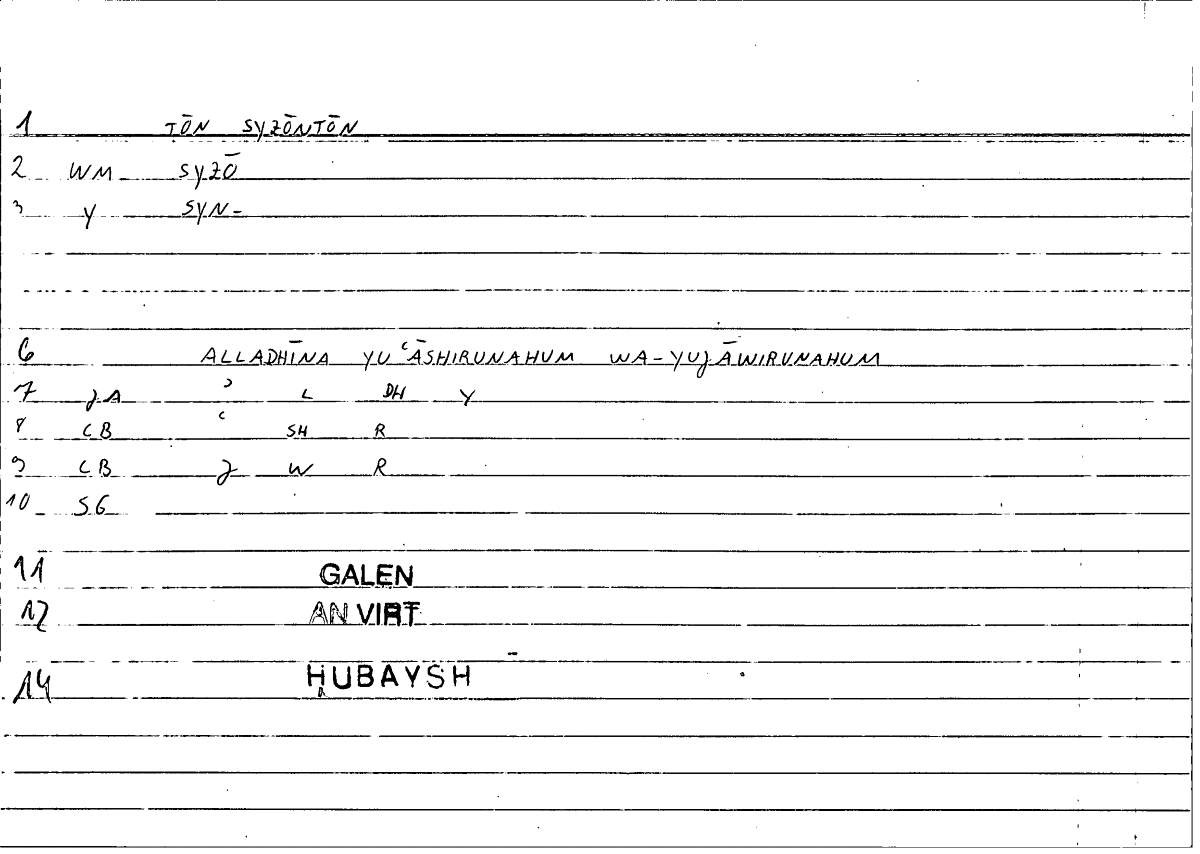 1 TŌN SYZŌNTŌN
2 WM SYZŌ
3 Y SYN-
6 ALLADHĪNA YUʿĀSHIRUNAHUM WA-YUJĀWIRUNAHUM
7 JA ʾ L DH Y
8 CB ʿ SH R
9 CB J W R
10 SG
11 GALEN
12 AN VIRT
14 ḤUBAYSH